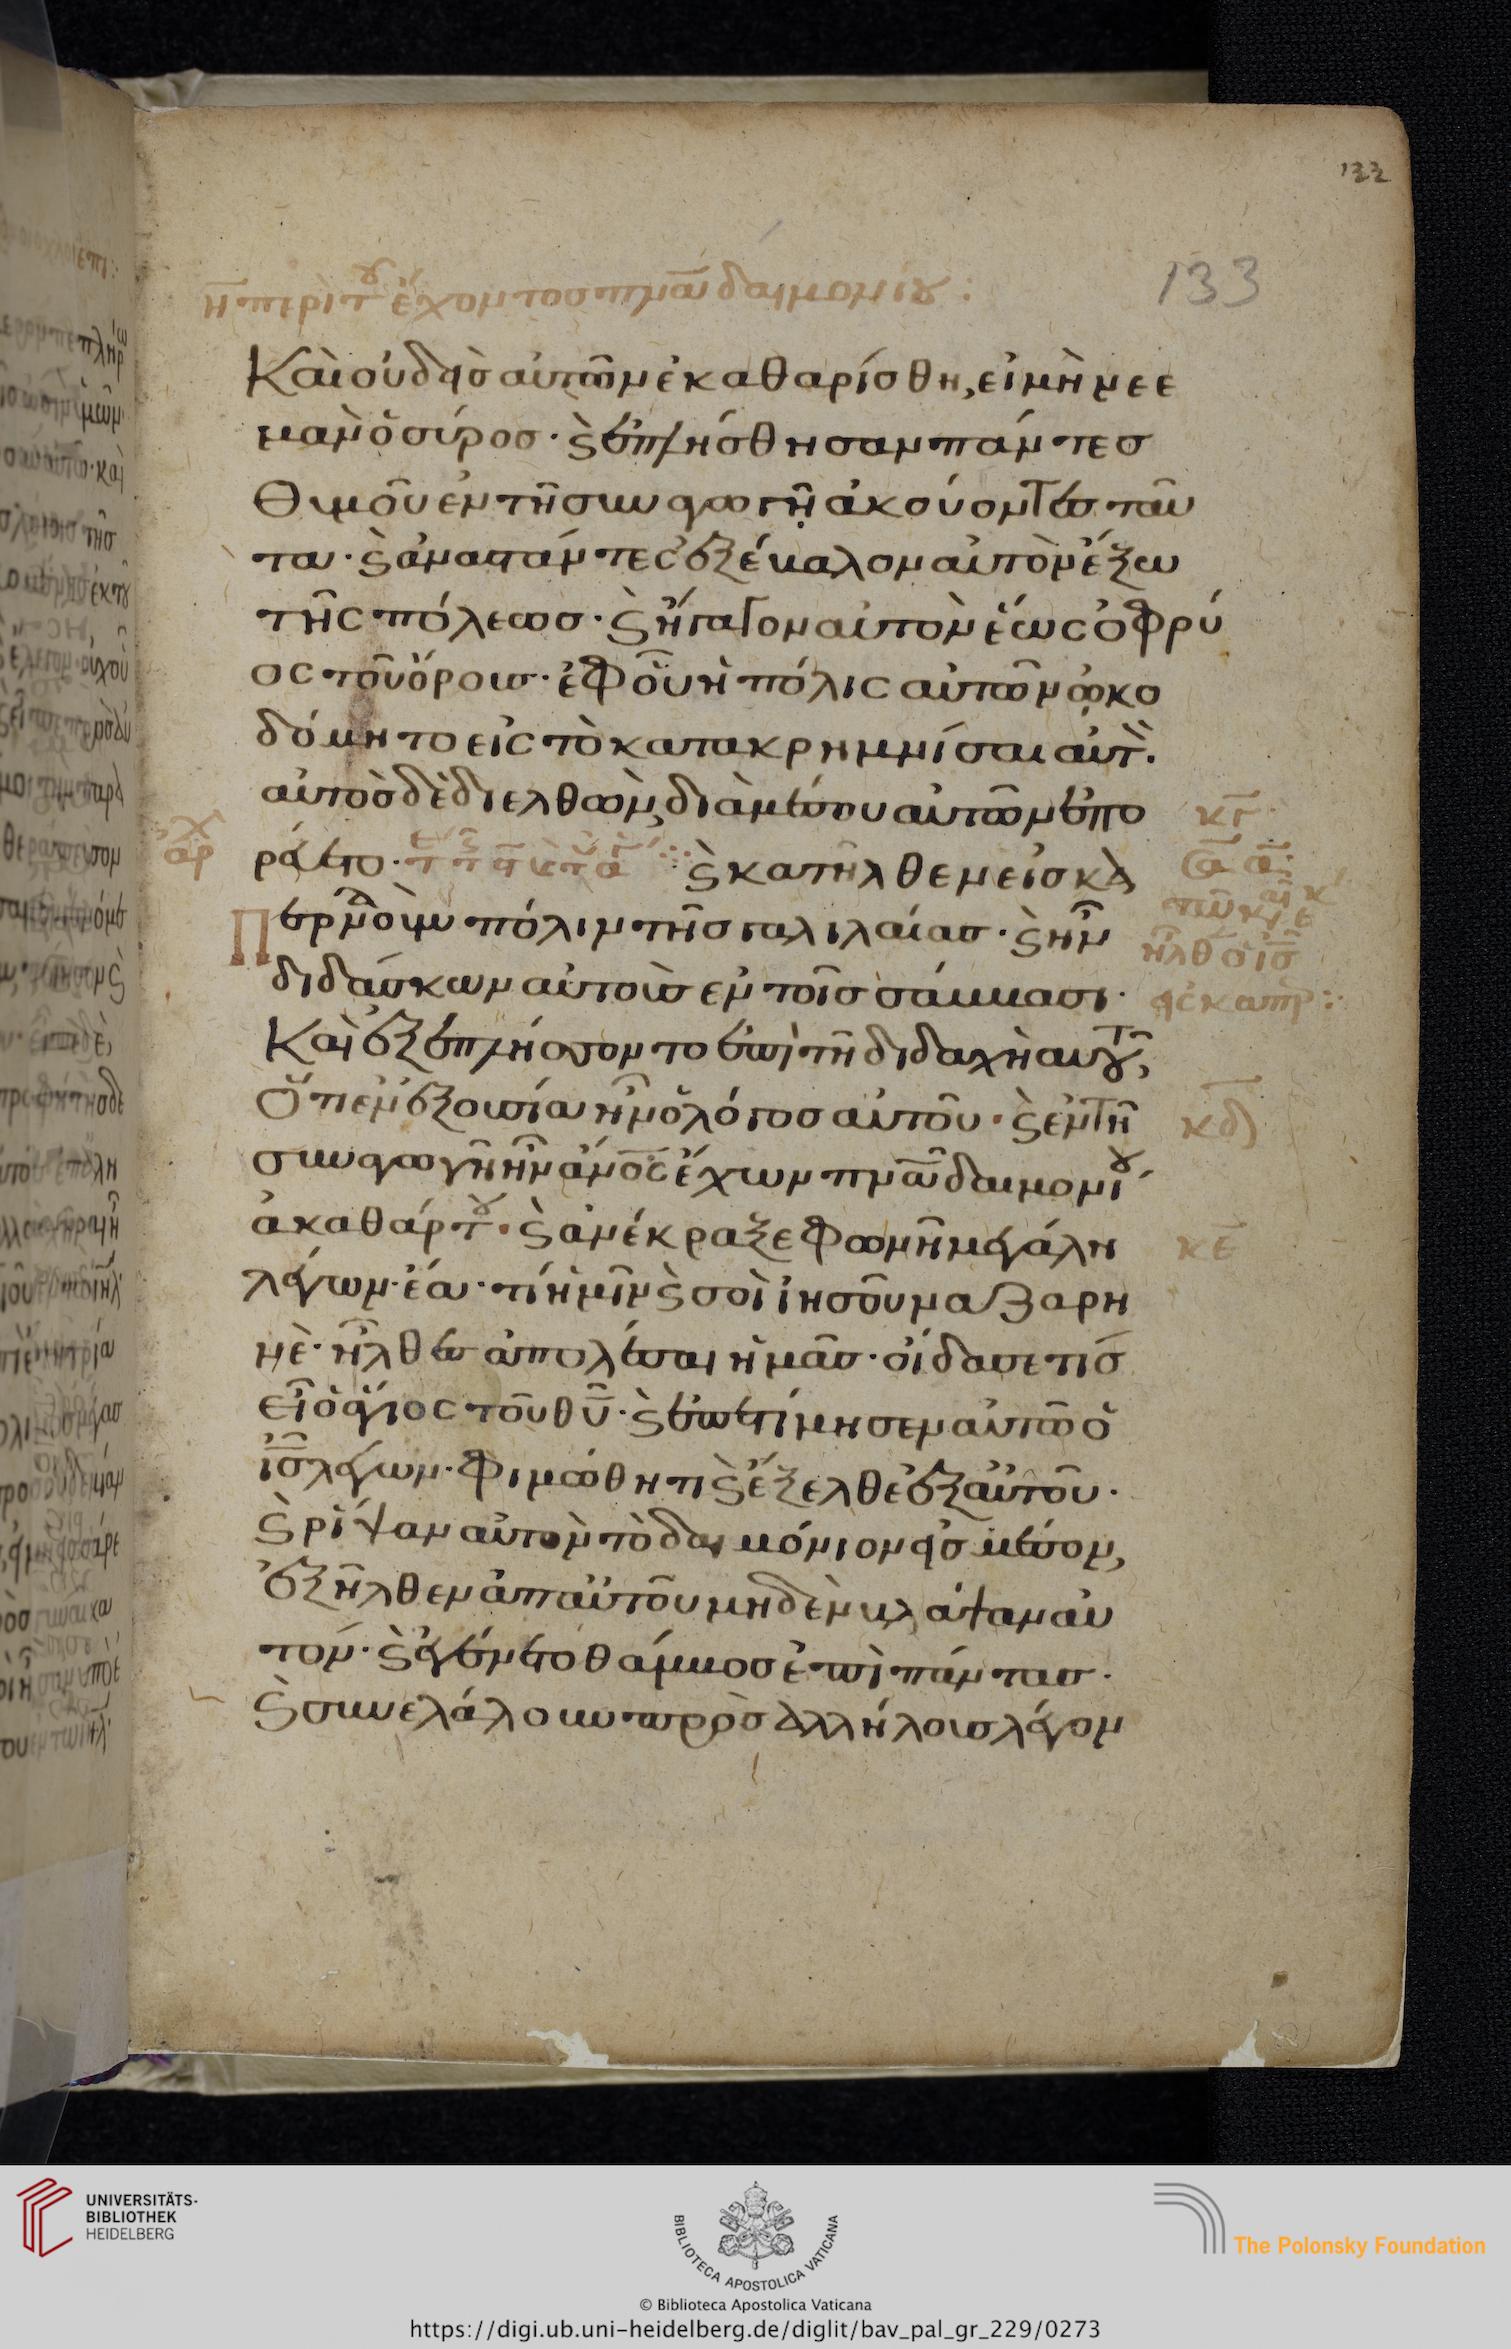 133
133
η περὶ τοῦ ἔχοντος πνᾶ δαιμονίου :
Καὶ οὐδεὶς αὐτῶν ἐκαθαρίσθη, εἰ μὴ νεε
μὰν ὁ σύρος · ϗ ἐπλήσθησαν πάντες
θυμοῦ ἐν τῆ συναγωγῆ ἀκούοντες ταῦ
τα · ϗ ἀναστάντες ἐξέβαλον αὐτὸν ἔξω
τῆς πόλεως · ϗ ἤγαγον αὐτὸν ἕως ὀφρύ
ος τοῦ ὄρους · ἐφ οὗ ἡ πόλις αὐτῶν ὠκο
δόμητο εἰς τὸ κατακρημνίσαι αὐτὸ.
αὐτὸς δὲ διελθὼν, διὰ μέσου αὐτῶν ἐπο
κγ
ἀρχ
ρεύετο · ϗ κατῆλθεν εἰς κα
Περναοὺμ πόλιν τῆς γαλιλαίας · ϗ ἦν
ἦλθ ὁ ἰς
διδάσκων αὐτοὺς ἐν τοῖς σάββασι ·
εἰς καπερ :
Καὶ ἐξεπλήσσοντο ἐπὶ τῆ διδαχὴ αυτοῦ,
Ὅτι ἐν ἐξουσία ἦν ὁ λόγος αὐτοῦ · ϗ ἐν τῆ
κδ
συναγωγῆ ἦν ἀνος ἔχων πνᾶ δαιμονίου
ἀκαθάρτου · ϗ ἀνέκραξε φωνῆ μεγάλη
κε
λέγων · ἔα · τί ἡμῖν ϗ σοὶ ἰησοῦ ναζαρη
νὲ · ἦλθες ἀπολέσαι ἡμᾶς · οἶδα σε τίς
εἶ ὁ ἅγιος τοῦ θυ · ϗ ἐπετίμησεν αὐτῶ ὁ
ἰς λέγων · φιμώθητι ϗ ἔξελθε ἐξ αὐτοῦ ·
ϗ ρίψαν αὐτὸν τὸ δαιμόνιον εἰς μέσον,
ἐξῆλθεν ἀπ αὐτοῦ μηδὲν βλάψαν αὐ
τόν · ϗ ἐγένετο θάμβος ἐπὶ πάντας ·
ϗ συνελάλουν πρὸς ἀλλήλους λέγον
UNIVERSITÄTS-
BIBLIOTHEK
HEIDELBERG
BIBLIOTECA APOSTOLICA VATICANA
© Biblioteca Apostolica Vaticana
The Polonsky Foundation
https://digi.ub.uni-heidelberg.de/diglit/bav_pal_gr_229/0273